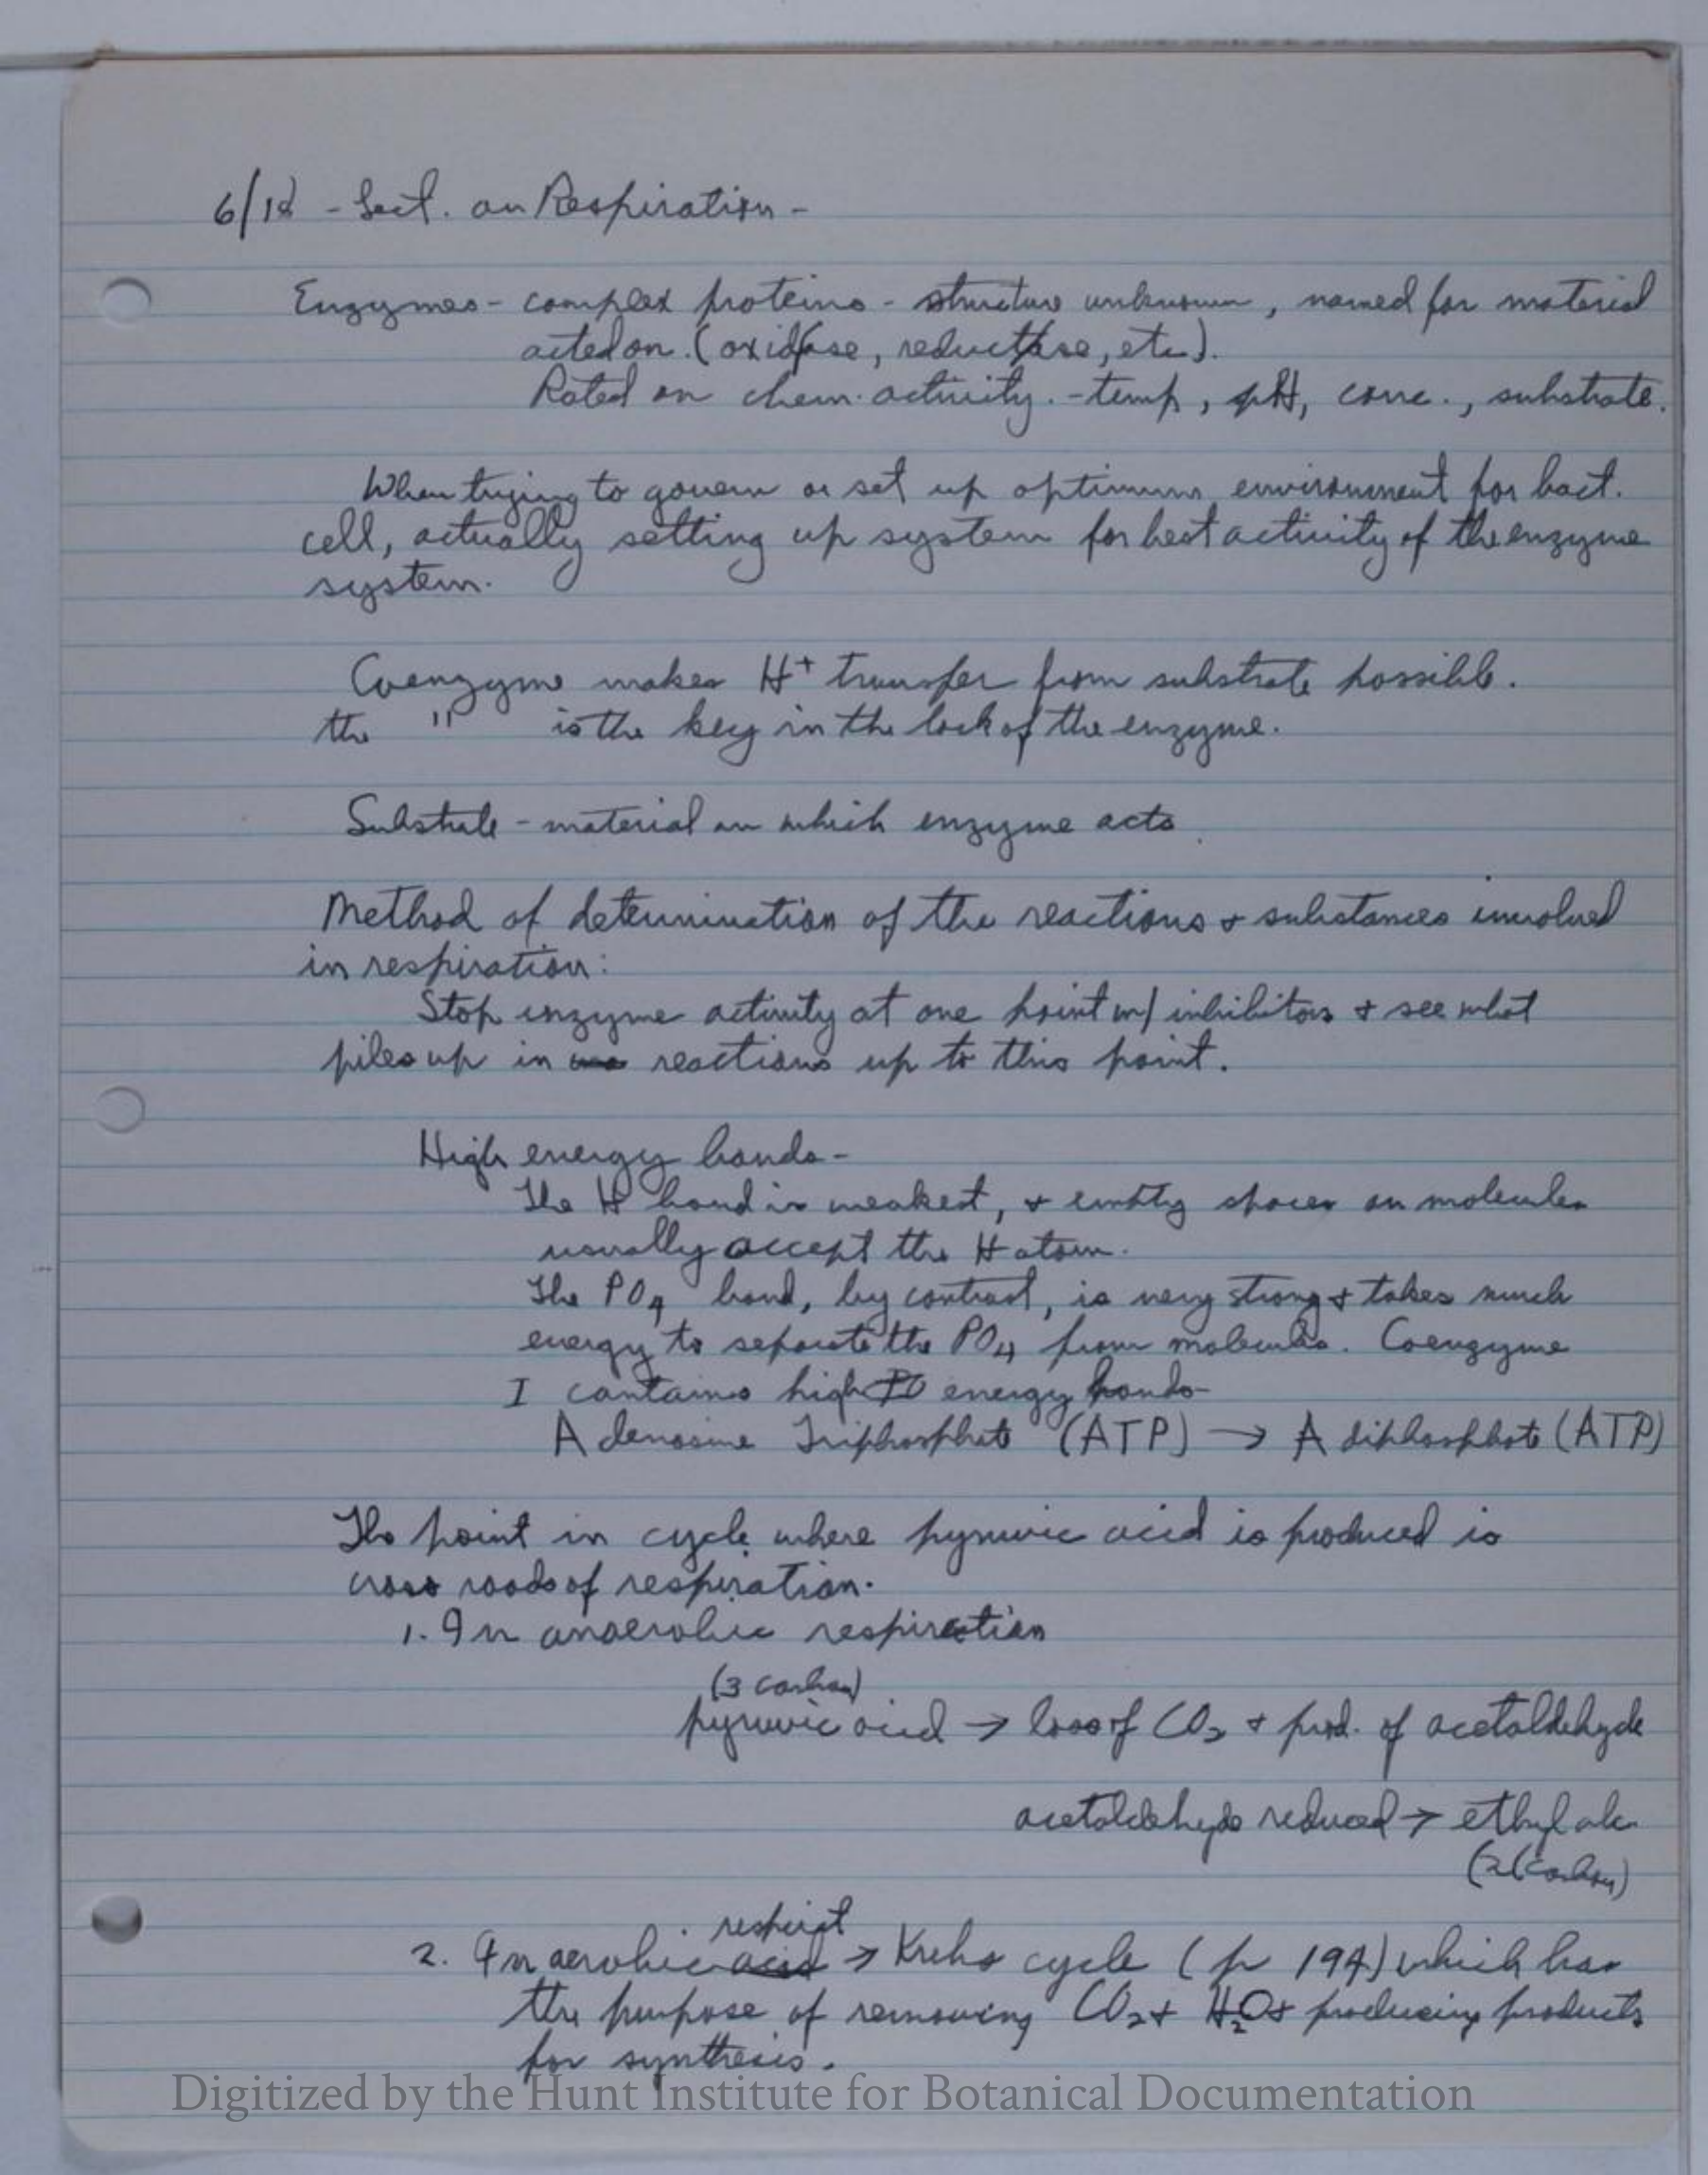 6/18 - Lect. on Respiration -
Enzymes - complex proteins - structure unknown, named for material
acted on. (oxidase, reductase, etc).
Rated on chem. activity. - temp, pH, conc., substrate.
When trying to govern or set up optimum environment for bact.
cell, actually setting up system for best activity of the enzyme
system.
Coenzyme makes H+ transfer from substrate possible.
the " is the key in the lock of the enzyme.
Substrate - material on which enzyme acts.
Method of determination of the reactions + substances involved
in respiration:
Stop enzyme activity at one point w/ inhibitors + see what
piles up in reactions up to this point.
High energy bonds -
The H bond is weakest, + empty spaces on molecules
usually accept the H atom.
The PO4 bond, by contrast, is very strong + takes much
energy to separate the PO4 from molecules. Coenzyme
I contains high energy bonds -
Adenosine Triphosphate (ATP) → A diphosphate (ATP)
The point in cycle where pyruvic acid is produced is
cross roads of respiration.
1. In anaerobic respiration
(3 carbon)
pyruvic acid → loss of CO2 + prod. of acetaldehyde
acetaldehyde reduced → ethyl alc
(2 carbon)
respirat
2. In aerobic acid → Krebs cycle (p 194) which has
the purpose of removing CO2 + H2O + producing products
for synthesis.
Digitized by the Hunt Institute for Botanical Documentation